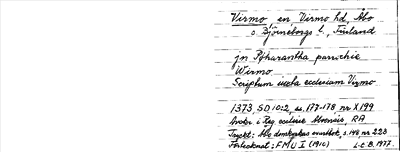 Virmo en Virmo hd, Åbo
o. Björneborgs l., Finland
jn Pyharantha parrochie
Wirmo
Scriptum iuxta ecclesiam Virmo
1373 SD 10:2, s. 177-178 nr X 199
Avskr. i Reg. ecclesie Aboensis, RA
Tryckt: Åbo domkyrkas svartbok, s. 148 nr 223
Förtecknat: FMU I (1910) L-E B. 1977.